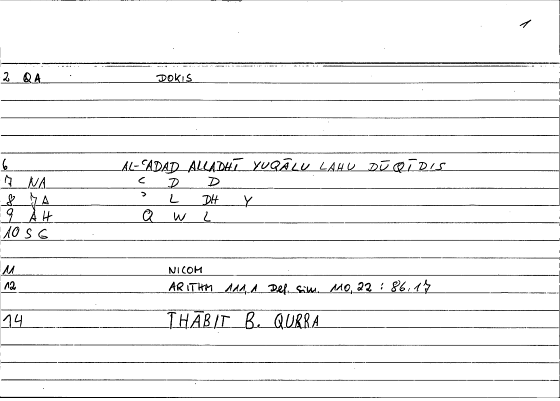 1
2 QA DOKIS
6 AL-ʿADAD ALLADHĪ YUQĀLU LAHU DŪQĪDIS
7 NA ʿ D D
8 7A ʾ L DH Y
9 AH Q W L
10 SG
11 NICOM
12 ARITHM 111,1 Def. sim. 110,22 : 86,17
14 THĀBIT B. QURRA